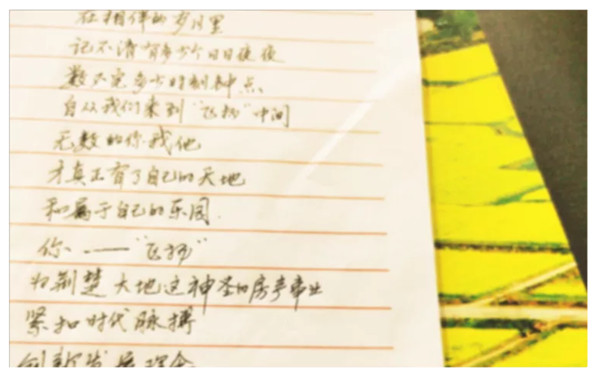 在相伴的岁月里
记不清有多少个日日夜夜
数不完多少时刻钟点
自从我们来到“飞扬”中间
无数的你我他
才真正有了自己的天地
和属于自己的乐园.
你——“飞扬”
为荆楚大地这神圣的房产事业
紧扣时代脉搏
创新发展理念